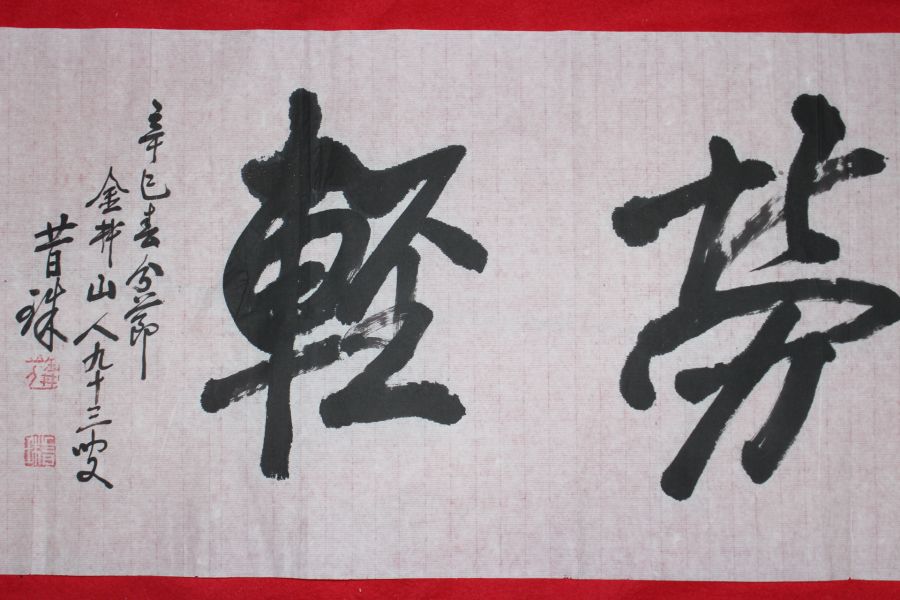 劳輕
辛巳春分節
金井山人九十三叟
昔珠